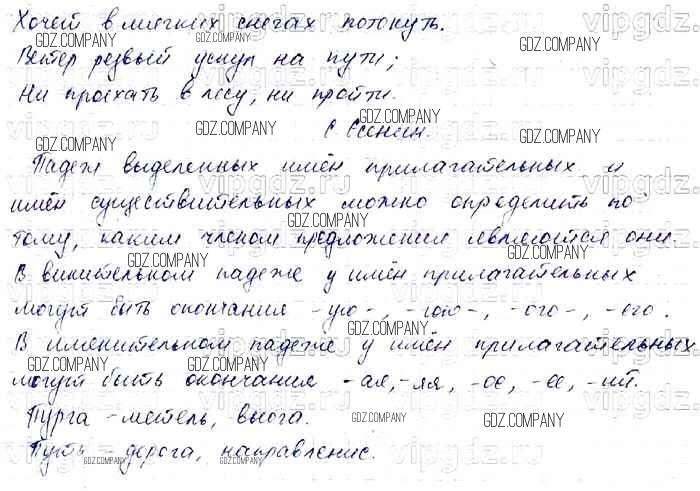 Хочет в мягких снегах потонуть.
Ветер резвый уснул на пути;
Ни проехать в лесу, ни пройти.
С. Есенин.
Падеж выделенных имён прилагательных и
имён существительных можно определить по
тому, каким членом предложения являются они.
В винительном падеже у имён прилагательных
могут быть окончания -ую-, -юю-, -ого-, -его.
В именительном падеже у имён прилагательных
могут быть окончания -ая, -яя, -ое, -ее, -ий.
Пурга - метель, вьюга.
Путь - дорога, направление.